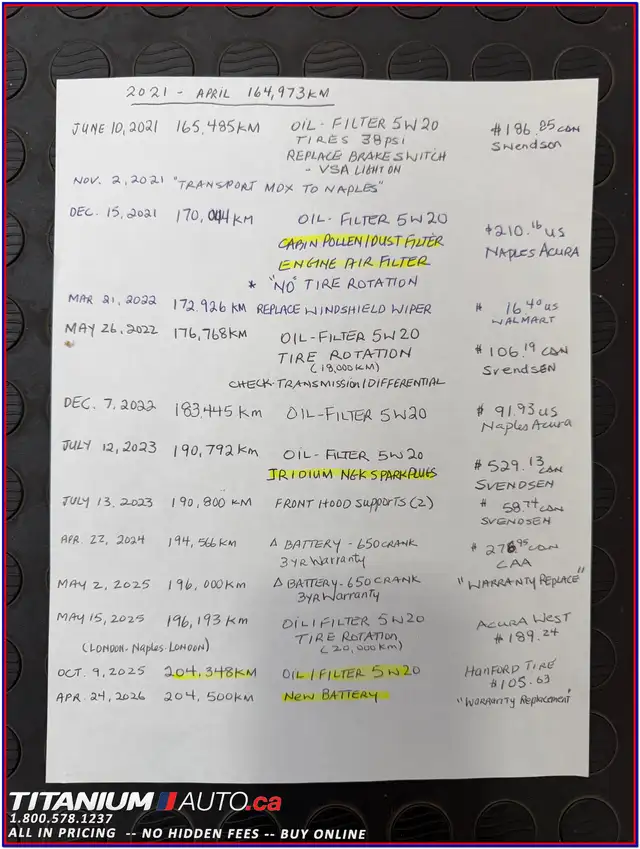 2021 - APRIL 164,973KM
JUNE 10, 2021 165,485KM OIL - FILTER 5W20 $186.85 CDN
TIRES 38psi SWENDSON
REPLACE BRAKE SWITCH
- VSA LIGHT ON
NOV. 2, 2021 "TRANSPORT MDX TO NAPLES"
DEC. 15, 2021 170,044 KM OIL - FILTER 5W20 $210.16 US
CABIN POLLEN/DUST FILTER NAPLES ACURA
ENGINE AIR FILTER
* "NO" TIRE ROTATION
MAR 21, 2022 172.926 KM REPLACE WINDSHIELD WIPER $ 16.40 US
WALMART
MAY 26, 2022 176,768KM OIL - FILTER 5W20
TIRE ROTATION $106.19 CDN
(18,000KM) SVENDSEN
CHECK-TRANSMISSION/DIFFERENTIAL
DEC. 7, 2022 183,445 KM OIL-FILTER 5W20 $ 91.93 US
Naples Acura
JULY 12, 2023 190,792 KM OIL - FILTER 5W20 $529.13 CDN
IRIDIUM NGK SPARKPLUGS SVENDSEN
JULY 13, 2023 190,800 KM FRONT HOOD SUPPORTS (2) $ 58.74 CDN
SVENDSEN
APR. 22, 2024 194,566KM Δ BATTERY - 650CRANK CDN
3YR Warranty CAA
MAY 2, 2025 196,000KM Δ BATTERY-650CRANK "WARRANTY REPLACE"
3YR Warranty
MAY 15, 2025 196,193 KM OIL/FILTER 5W20 ACURA WEST
(LONDON-NAPLES-LONDON) TIRE ROTATION $189.24
(20,000KM)
OCT. 9, 2025 204,348KM OIL/FILTER 5W20 HANFORD TIRE
$105.63
APR. 24, 2026 204,500KM NEW BATTERY "WARRANTY Replacement"
TITANIUM AUTO.ca
1.800.578.1237
ALL IN PRICING -- NO HIDDEN FEES -- BUY ONLINE